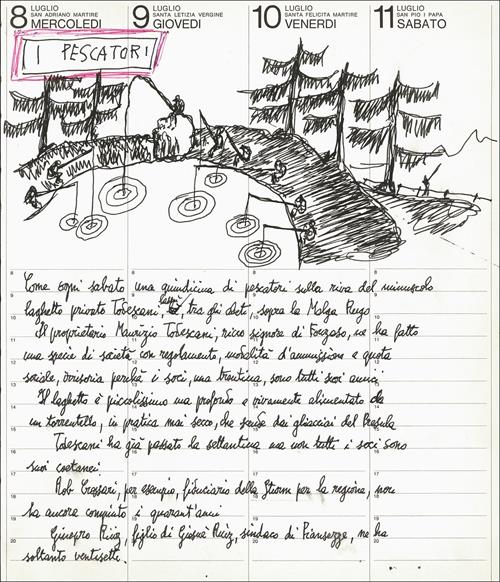 8 LUGLIO SAN ADRIANO MARTIRE MERCOLEDI
9 LUGLIO SANTA LETIZIA VERGINE GIOVEDI
10 LUGLIO SANTA FELICITA MARTIRE VENERDI
11 LUGLIO SAN PIO I PAPA SABATO
I PESCATORI
Come ogni sabato una quindicina di pescatori sulla riva del minuscolo
laghetto privato Todescani, lassù, tra gli abeti, sopra la Malga Puga
Il proprietario Maurizio Todescani, ricco signore di Fonzaso, ne ha fatto
una specie di società con regolamento, modalità d'ammissione e quota
sociale, irrisoria perché i soci, una trentina, sono tutti suoi amici
Il laghetto è piccolissimo ma profondo e vivamente alimentato da
un torrentello, in pratica mai secco, che scende dai ghiacciai del
Todescani ha già passato la settantina ma non tutti i soci sono
suoi coetanei
Rob Crossari, per esempio, fiduciario della Sturm per la regione, non
ha ancora compiuto i quarant'anni
Ruiz, figlio di Giosuè Ruiz, sindaco di ne ha
soltanto ventisette.